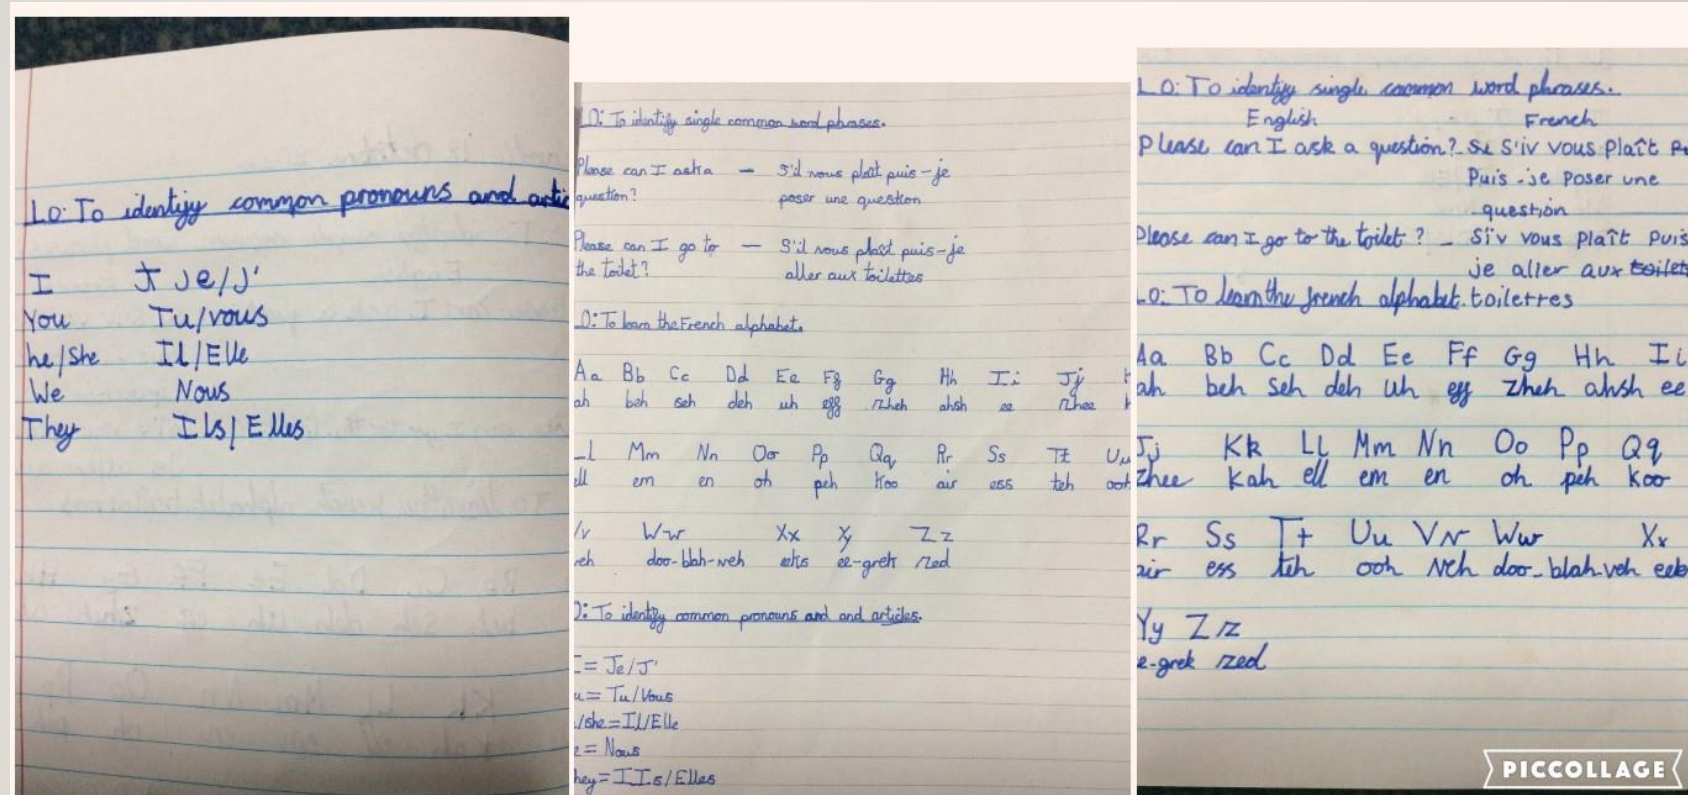 LO: To identify common pronouns and artic
I Je/J'
You Tu/vous
he/She Il/Elle
We Nous
They Ils/Elles
LO: To identify single common word phrases.
Please can I ask a — S'il vous plaît puis-je
question? poser une question
Please can I go to — S'il vous plaît puis-je
the toilet? aller aux toilettes
O: To learn the French alphabet.
Aa Bb Cc Dd Ee Ff Gg Hh Ii Jj
ah beh seh deh uh eff zheh ahsh ee zhee
l Mm Nn Oo Pp Qq Rr Ss Tt Uu
ell em en oh peh koo air ess teh ooh
v Ww Xx Xy Zz
eh doo-blah-veh eeks ee-grek zed
O: To identify common pronouns and and articles.
I = Je/J'
u = Tu/Vous
/she = Il/Elle
e = Nous
hey = IIs/Elles
LO: To identify single common word phrases.
English French
Please can I ask a question? - S'iv vous Plaît
Puis-je Poser une
question
Please can I go to the toilet? - S'iv vous Plaît Puis
je aller aux toilet
LO: To learn the french alphabet. toilettres
Aa Bb Cc Dd Ee Ff Gg Hh Ii
ah beh seh deh uh eff zheh ahsh ee
Jj Kk Ll Mm Nn Oo Pp Qq
zhee kah ell em en oh peh koo
Rr Ss Tt Uu Vv Ww Xx
air ess teh ooh veh doo-blah-veh eek
Yy Zz
e-grek zed
PICCOLLAGE